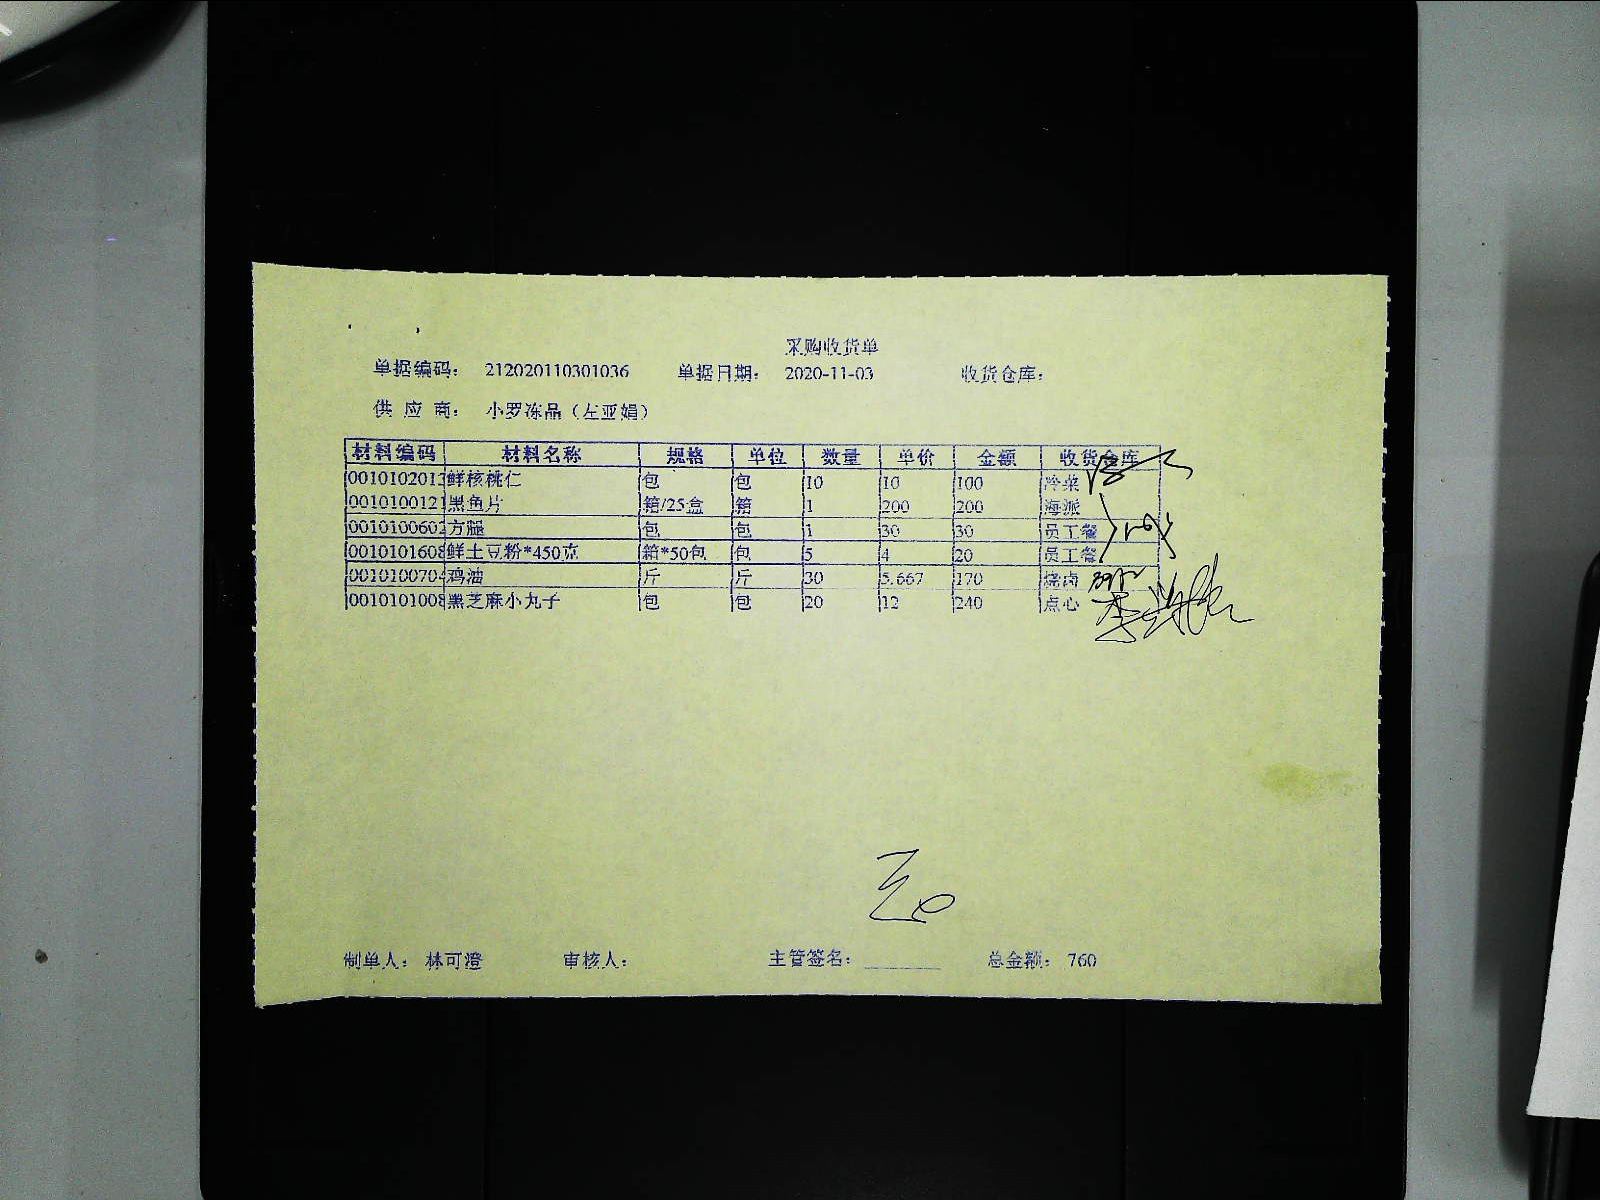 采购收货单
单据编码： 212020110301036 单据日期： 2020-11-03 收货仓库：
供 应 商： 小罗冻品（左亚娟）
材料编码 材料名称 规格 单位 数量 单价 金额 收货仓库
001010201 鲜核桃仁 包 包 10 10 100 冷菜
001010012 黑鱼片 箱/25盒 箱 1 200 200 海派
001010060 方腿 包 包 1 30 30 员工餐
0010101608 鲜土豆粉*450克 箱*50包 包 5 4 20 员工餐
001010070 鸡油 斤 斤 30 5.667 170 烧卤
0010101008 黑芝麻小丸子 包 包 20 12 240 点心
制单人： 林可澄 审核人： 主管签名： 总金额： 760